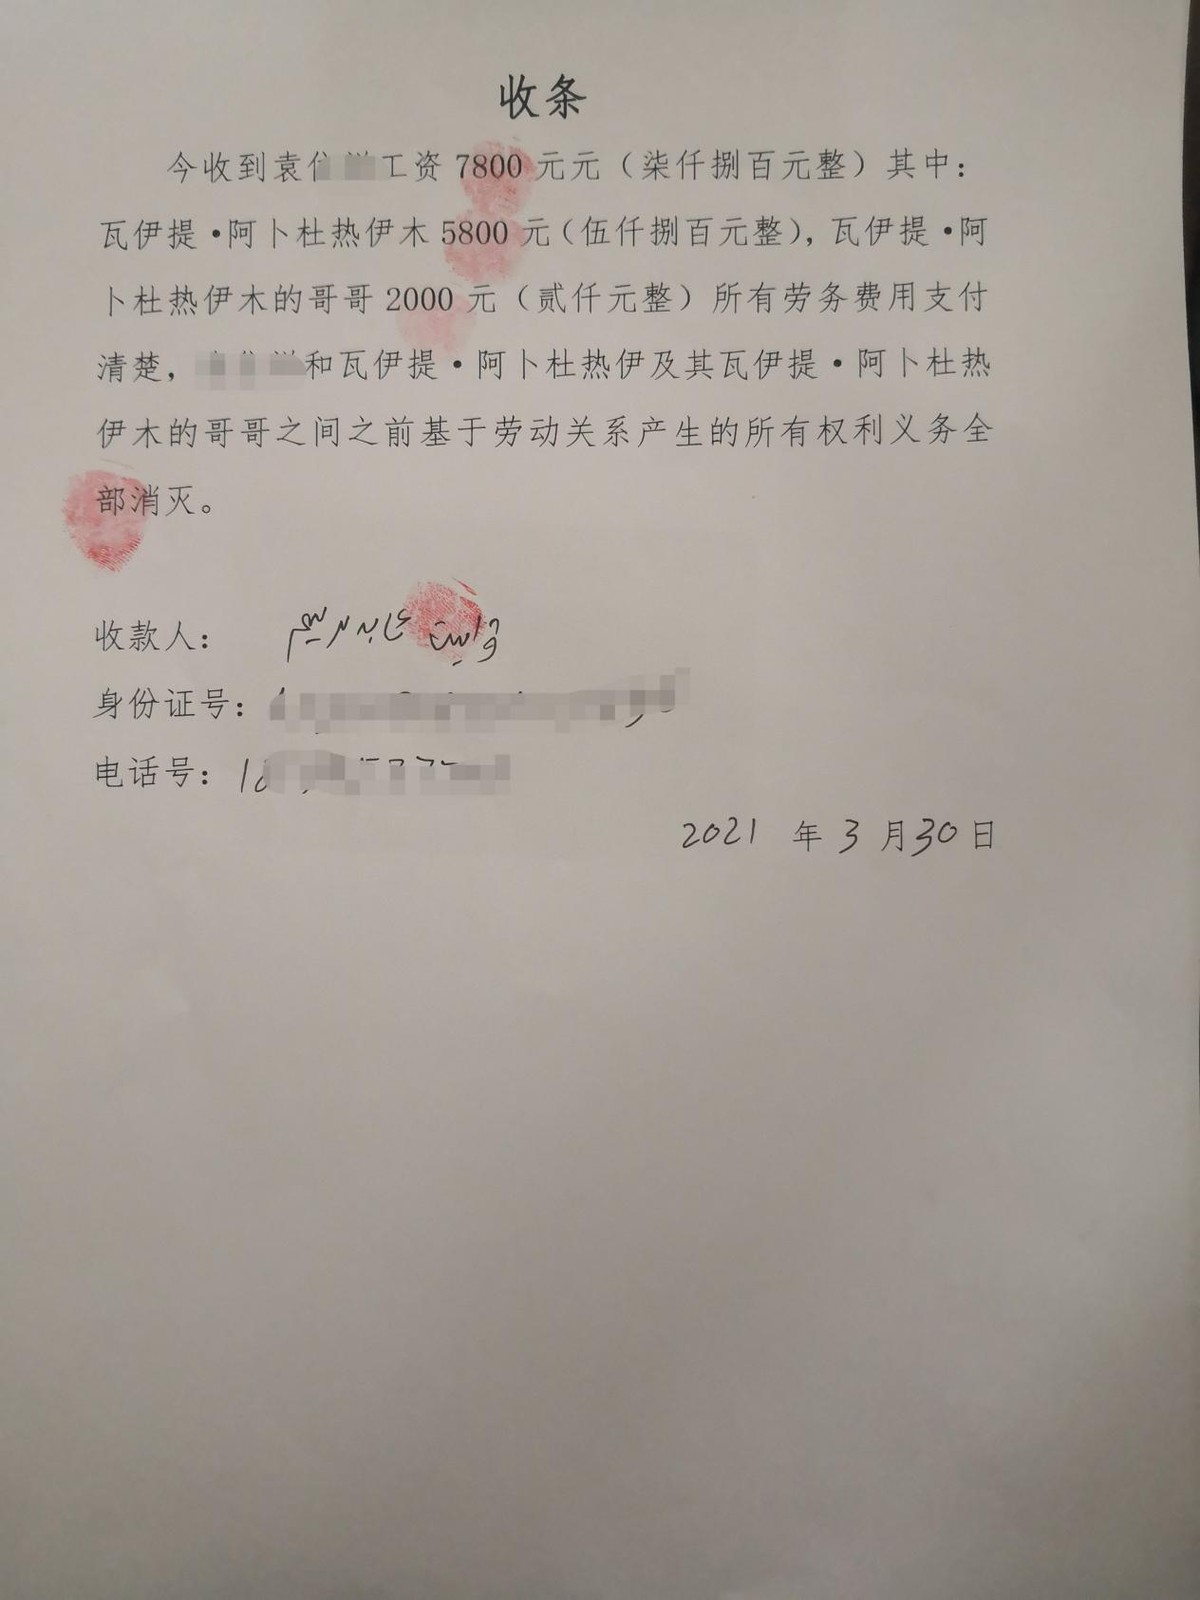 收条
今收到袁工资 7800 元元（柒仟捌百元整）其中：
瓦伊提·阿卜杜热伊木 5800 元（伍仟捌百元整），瓦伊提·阿
卜杜热伊木的哥哥 2000 元（贰仟元整）所有劳务费用支付
清楚，和瓦伊提·阿卜杜热伊及其瓦伊提·阿卜杜热
伊木的哥哥之间之前基于劳动关系产生的所有权利义务全
部消灭。
收款人：
身份证号：
电话号：
2021 年 3 月 30 日